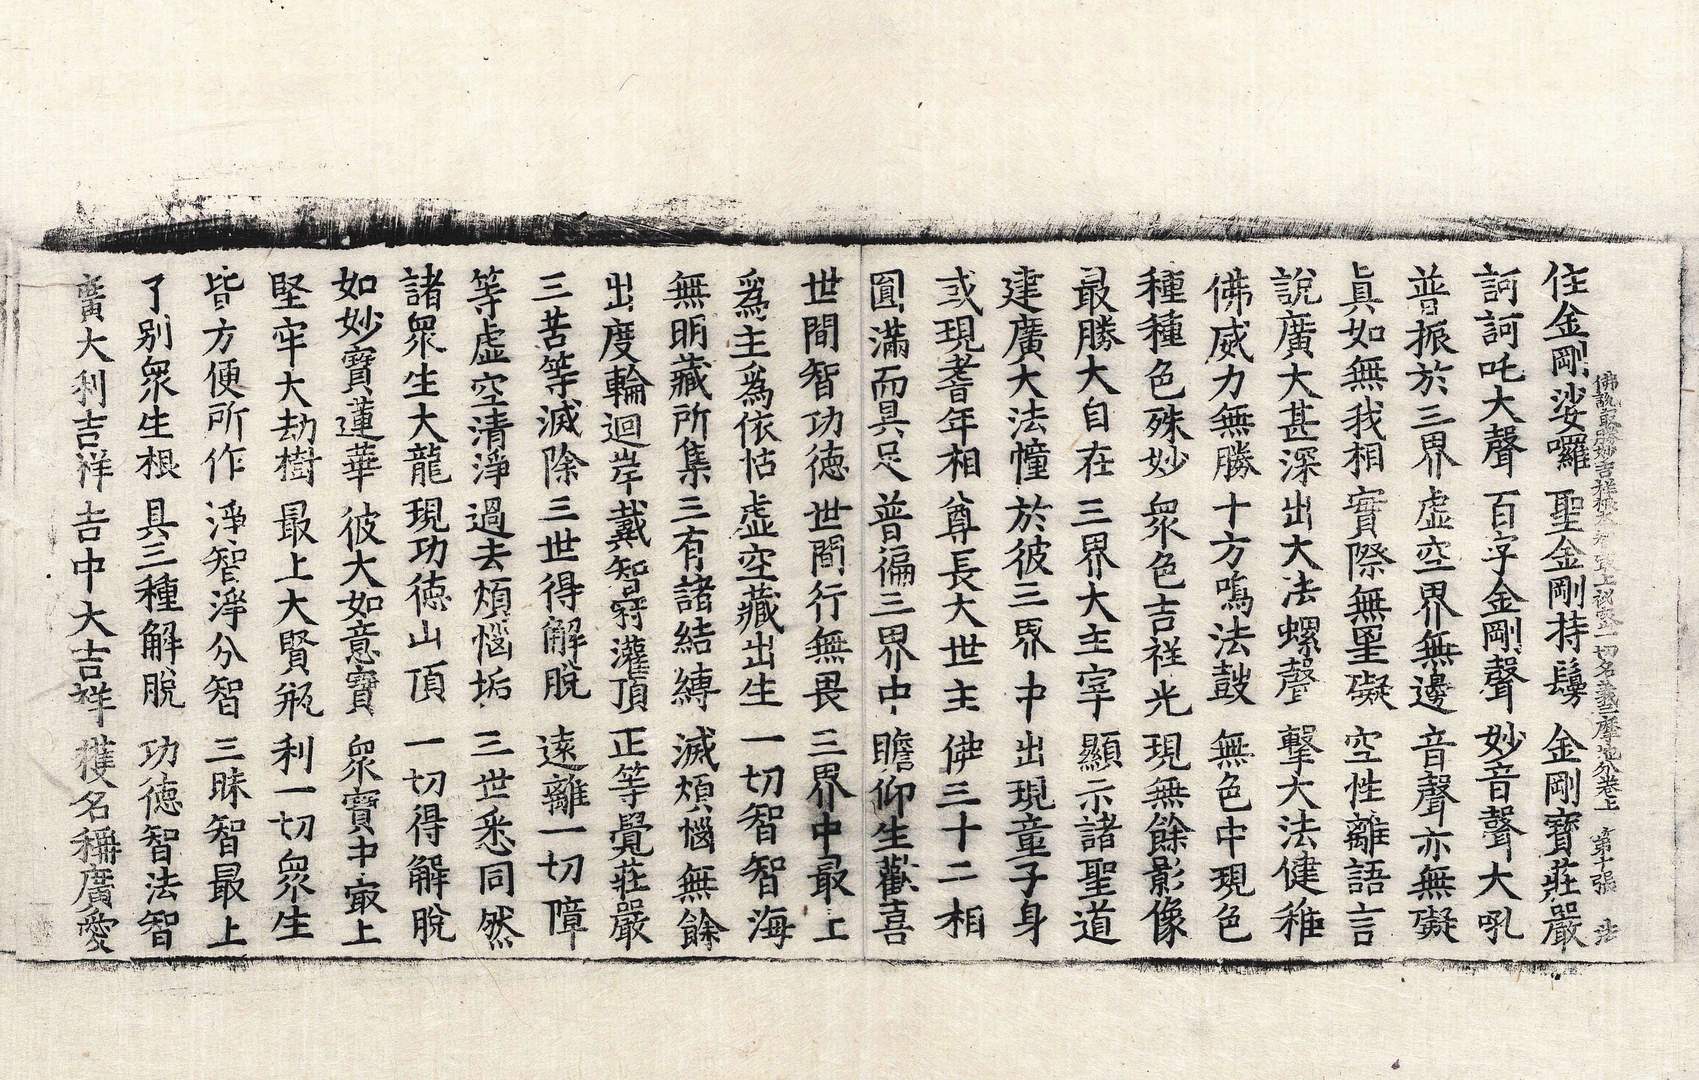 佛說最勝妙吉祥根本智最上祕密一切名義三摩地分卷上 第十張 法
住金剛娑囉 聖金剛持鬘 金剛寶莊嚴
訶訶吒大聲 百字金剛聲 妙音聲大吼
普振於三界 虛空界無邊 音聲亦無礙
眞如無我相 實際無罣礙 空性離語言
說廣大甚深 出大法螺聲 擊大法健稚
佛威力無勝 十方鳴法鼓 無色中現色
種種色殊妙 衆色吉祥光 現無餘影像
最勝大自在 三界大主宰 顯示諸聖道
建廣大法幢 於彼三界中 出現童子身
或現耆年相 尊長大世主 佛三十二相
圓滿而具足 普徧三界中 瞻仰生歡喜
世間智功德 世間行無畏 三界中最上
爲主爲依怙 虛空藏出生 一切智智海
無明藏所集 三有諸結縛 滅煩惱無餘
出度輪迴岸 戴智冠灌頂 正等覺莊嚴
三苦等滅除 三世得解脫 遠離一切障
等虛空清淨 過去煩惱垢 三世悉同然
諸衆生大龍 現功德山頂 一切得解脫
如妙寶蓮華 彼大如意寶 衆寶中最上
堅牢大劫樹 最上大賢瓶 利一切衆生
皆方便所作 淨智淨分智 三昧智最上
了别衆生根 具三種解脫 功德智法智
廣大利吉祥 吉中大吉祥 獲名稱廣愛